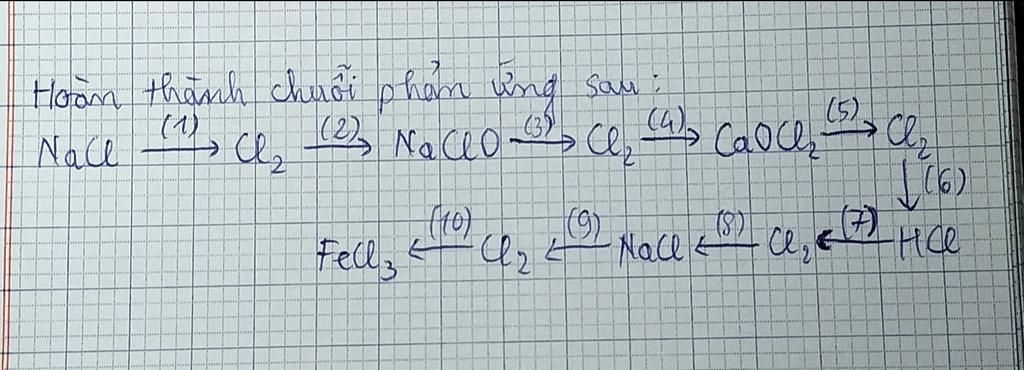 Hoàn thành chuỗi phản ứng sau:
NaCl (1)→ Cl₂ (2)→ NaClO (3)→ Cl₂ (4)→ CaOCl₂ (5)→ Cl₂
↓(6)
FeCl₃ ←(10) Cl₂ ←(9) NaCl ←(8) Cl₂ ←(7) HCl